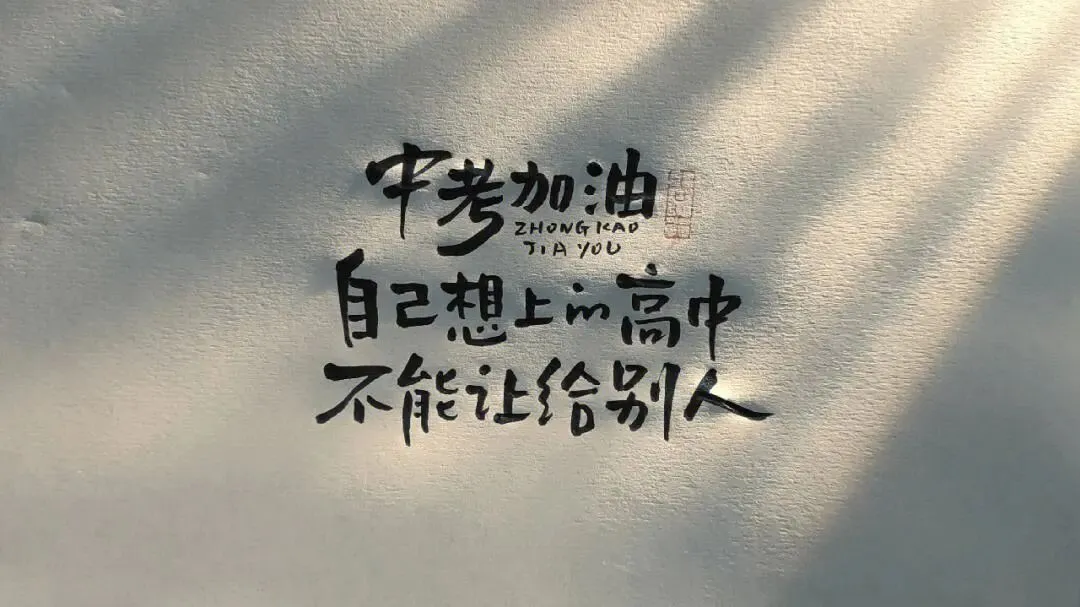 中考加油
ZHONGKAO
JIA YOU
自己想上in高中
不能让给别人